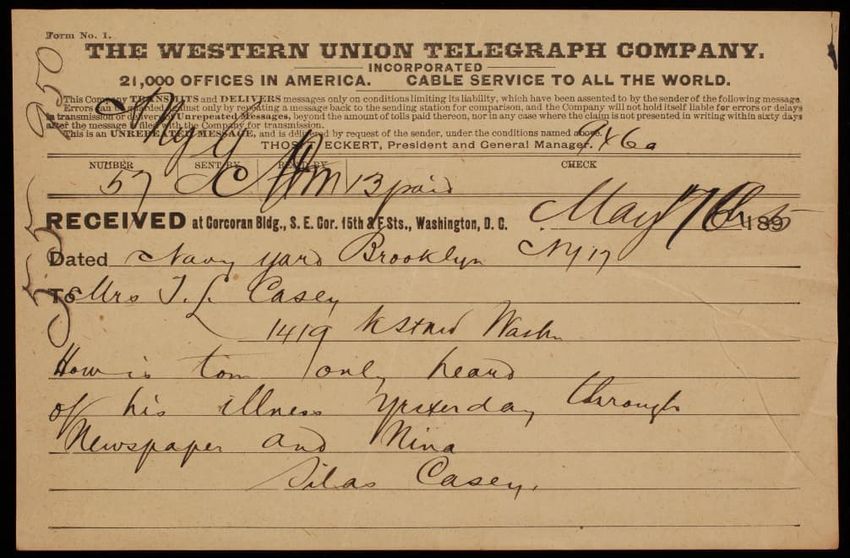 Form No. 1.
THE WESTERN UNION TELEGRAPH COMPANY.
INCORPORATED
21,000 OFFICES IN AMERICA. CABLE SERVICE TO ALL THE WORLD.
This Company TRANSMITS and DELIVERS messages only on conditions limiting its liability, which have been assented to by the sender of the following message.
Errors can be guarded against only by repeating a message back to the sending station for comparison, and the Company will not hold itself liable for errors or delays
in transmission or delivery of Unrepeated Messages, beyond the amount of tolls paid thereon, nor in any case where the claim is not presented in writing within sixty days
after the message is filed with the Company for transmission.
This is an UNREPEATED MESSAGE, and is delivered by request of the sender, under the conditions named above.
THOS. T. ECKERT, President and General Manager.
NUMBER SENT BY REC'D BY CHECK
57 13 paid
RECEIVED at Corcoran Bldg., S. E. Cor. 15th & F Sts., Washington, D. C. May 189
Dated Navy Yard Brooklyn NY 17
To Mrs T. L. Casey
1419 K St Wash
How is tom I only heard
of his illness yesterday through
Newspaper and Nina
Silas Casey.
550